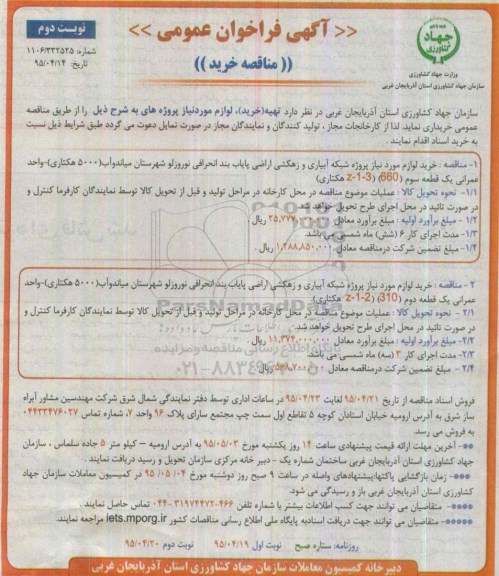 نوبت دوم
<< آگهی فراخوان عمومی >>
(( مناقصه خرید ))
شماره: ۱۱۰۶/۳۳۲۵۲۵
تاریخ: ۹۵/۰۴/۱۴
جهاد
کشاورزی
وزارت جهاد کشاورزی
سازمان جهاد کشاورزی استان آذربایجان غربی
سازمان جهاد کشاورزی استان آذربایجان غربی در نظر دارد تهیه(خرید)، لوازم موردنیاز پروژه های به شرح ذیل را از طریق مناقصه
عمومی خریداری نماید. لذا از کارخانجات مجاز ، تولید کنندگان و نمایندگان مجاز در صورت تمایل دعوت می گردد طبق شرایط ذیل نسبت
به خرید اسناد اقدام نمایند .
۱- مناقصه : خرید لوازم مورد نیاز پروژه شبکه آبیاری و زهکشی اراضی پایاب بند انحرافی نوروزلو شهرستان میاندوآب(۵۰۰۰ هکتاری)-واحد
عمرانی یک قطعه سوم (z-1-3) (660 هکتاری)
۱/۱- نحوه تحویل کالا : عملیات موضوع مناقصه در محل کارخانه در مراحل تولید و قبل از تحویل کالا توسط نمایندگان کارفرما کنترل و
در صورت تائید در محل اجرای طرح تحویل خواهد شد.
۱/۲- مبلغ برآورد اولیه : مبلغ برآورد معادل ۲۵,۷۷۷, ریال .
۱/۳-مدت اجرای کار ۶ (شش) ماه شمسی می باشد.
۱/۴-مبلغ تضمین شرکت درمناقصه معادل ۱,۲۸۸,۸۵۰,۰۰۰ ریال .
۲ - مناقصه : خرید لوازم مورد نیاز پروژه شبکه آبیاری و زهکشی اراضی پایاب بند انحرافی نوروزلو شهرستان میاندوآب(۵۰۰۰ هکتاری)-واحد
عمرانی یک قطعه دوم (z-1-2) (310 هکتاری)
۲/۱ - نحوه تحویل کالا : عملیات موضوع مناقصه در محل کارخانه در مراحل تولید و قبل از تحویل کالا توسط نمایندگان کارفرما کنترل و
در صورت تائید در محل اجرای طرح تحویل خواهد شد.
۲/۲- مبلغ برآورد اولیه : مبلغ برآورد معادل ۱۱,۳۷۴,۰۰۰,۰۰۰ ریال .
۲/۳- مدت اجرای کار ۳ (سه) ماه شمسی می باشد.
۲/۴ - مبلغ تضمین شرکت درمناقصه معادل ریال .
ParsNamadData
پایگاه اطلاع رسانی مناقصه و مزایده
فروش اسناد مناقصه از تاریخ ۹۵/۰۴/۲۱ لغایت ۹۵/۰۴/۲۳ در ساعات اداری توسط دفتر نمایندگی شمال شرق شرکت مهندسین مشاور آبراه
ساز شرق به آدرس ارومیه خیابان استادان کوچه ۵ تقاطع اول سمت چپ مجتمع سارای پلاک ۹۶ واحد ۷، شماره تماس ۰۴۴۳۳۴۷۶۰۲۷
به فروش می رسد.
- آخرین مهلت ارائه قیمت پیشنهادی ساعت ۱۴ روز یکشنبه مورخ ۹۵/۰۵/۰۳ به آدرس ارومیه – کیلو متر ۵ جاده سلماس ، سازمان
جهاد کشاورزی استان آذربایجان غربی ساختمان شماره یک - دبیر خانه مرکزی سازمان تحویل و رسید دریافت نمایند .
- زمان بازگشایی پاکتها:پیشنهادهای واصله در ساعت ۹ صبح روز دوشنبه مورخ ۹۵/۰۵/۰۴ در کمیسیون معاملات سازمان جهاد
کشاورزی استان آذربایجان غربی باز و رسیدگی می شود.
- متقاضیان می توانند جهت کسب اطلاعات بیشتر با شماره تلفن ۴۶۶-۳۱۹۷۴۴۷۲-۰۴۴ تماس حاصل نمایند .
- متقاضیان می توانند جهت دریافت اسنادبه پایگاه ملی اطلاع رسانی مناقصات کشور iets.mporg.ir مراجعه نمایند.
روزنامه: ستاره صبح نوبت اول ۹۵/۰۴/۱۹ نوبت دوم ۹۵/۰۴/۲۰
دبیرخانه کمیسیون معاملات سازمان جهاد کشاورزی استان آذربایجان غربی